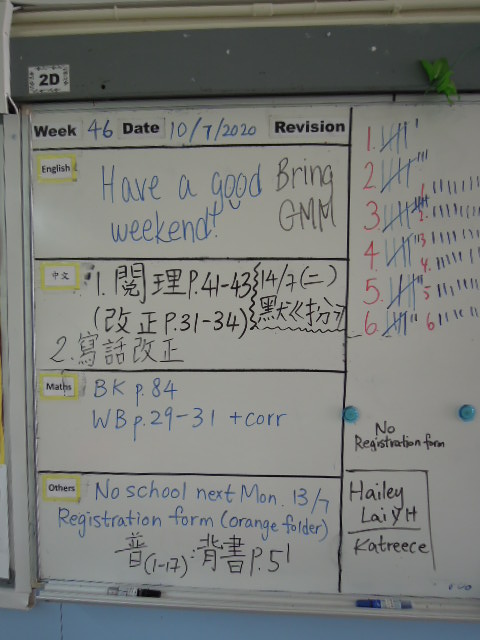 2D
Week 46 Date 10/7/2020 Revision
English
Have a good weekend!
Bring GMM
中文
1. 閱理P.41-43
(改正P.31-34)
14/7(二)
默《扮
2. 寫話改正
Maths
BK p.84
WB p.29-31 +corr
Others
No school next Mon. 13/7
Registration form (orange folder)
普(1-17):背書P.51
1.
2
3
4
5.
6.
1.
2.
3
4.
5
6
No
Registration form
Hailey
Lai YH
Katreece